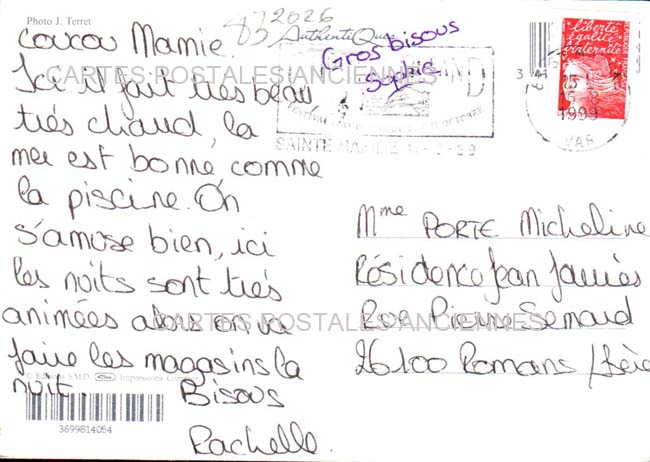 Photo J. Terret
83 2026
Authentique
Coucou Mamie.
Gros bisous
Sophie.
Ici il fait très beau
CARTES POSTALES ANCIENNES
très chaud, la
mer est bonne comme
la piscine. On
s'amuse bien, ici
les nuits sont très
animées alors on va
faire les magasins la
nuit.
Bisous
Rachelle.
liberté
égalité
fraternité
1999
VAR
SAINTE MAXIME
Mme PORTE Micheline
Résidence Jean Jaurès
Rue Pierre Semard
CARTES POSTALES ANCIENNES
26100 Romans /Isère
© Editions SMD
Impressions
3699814054